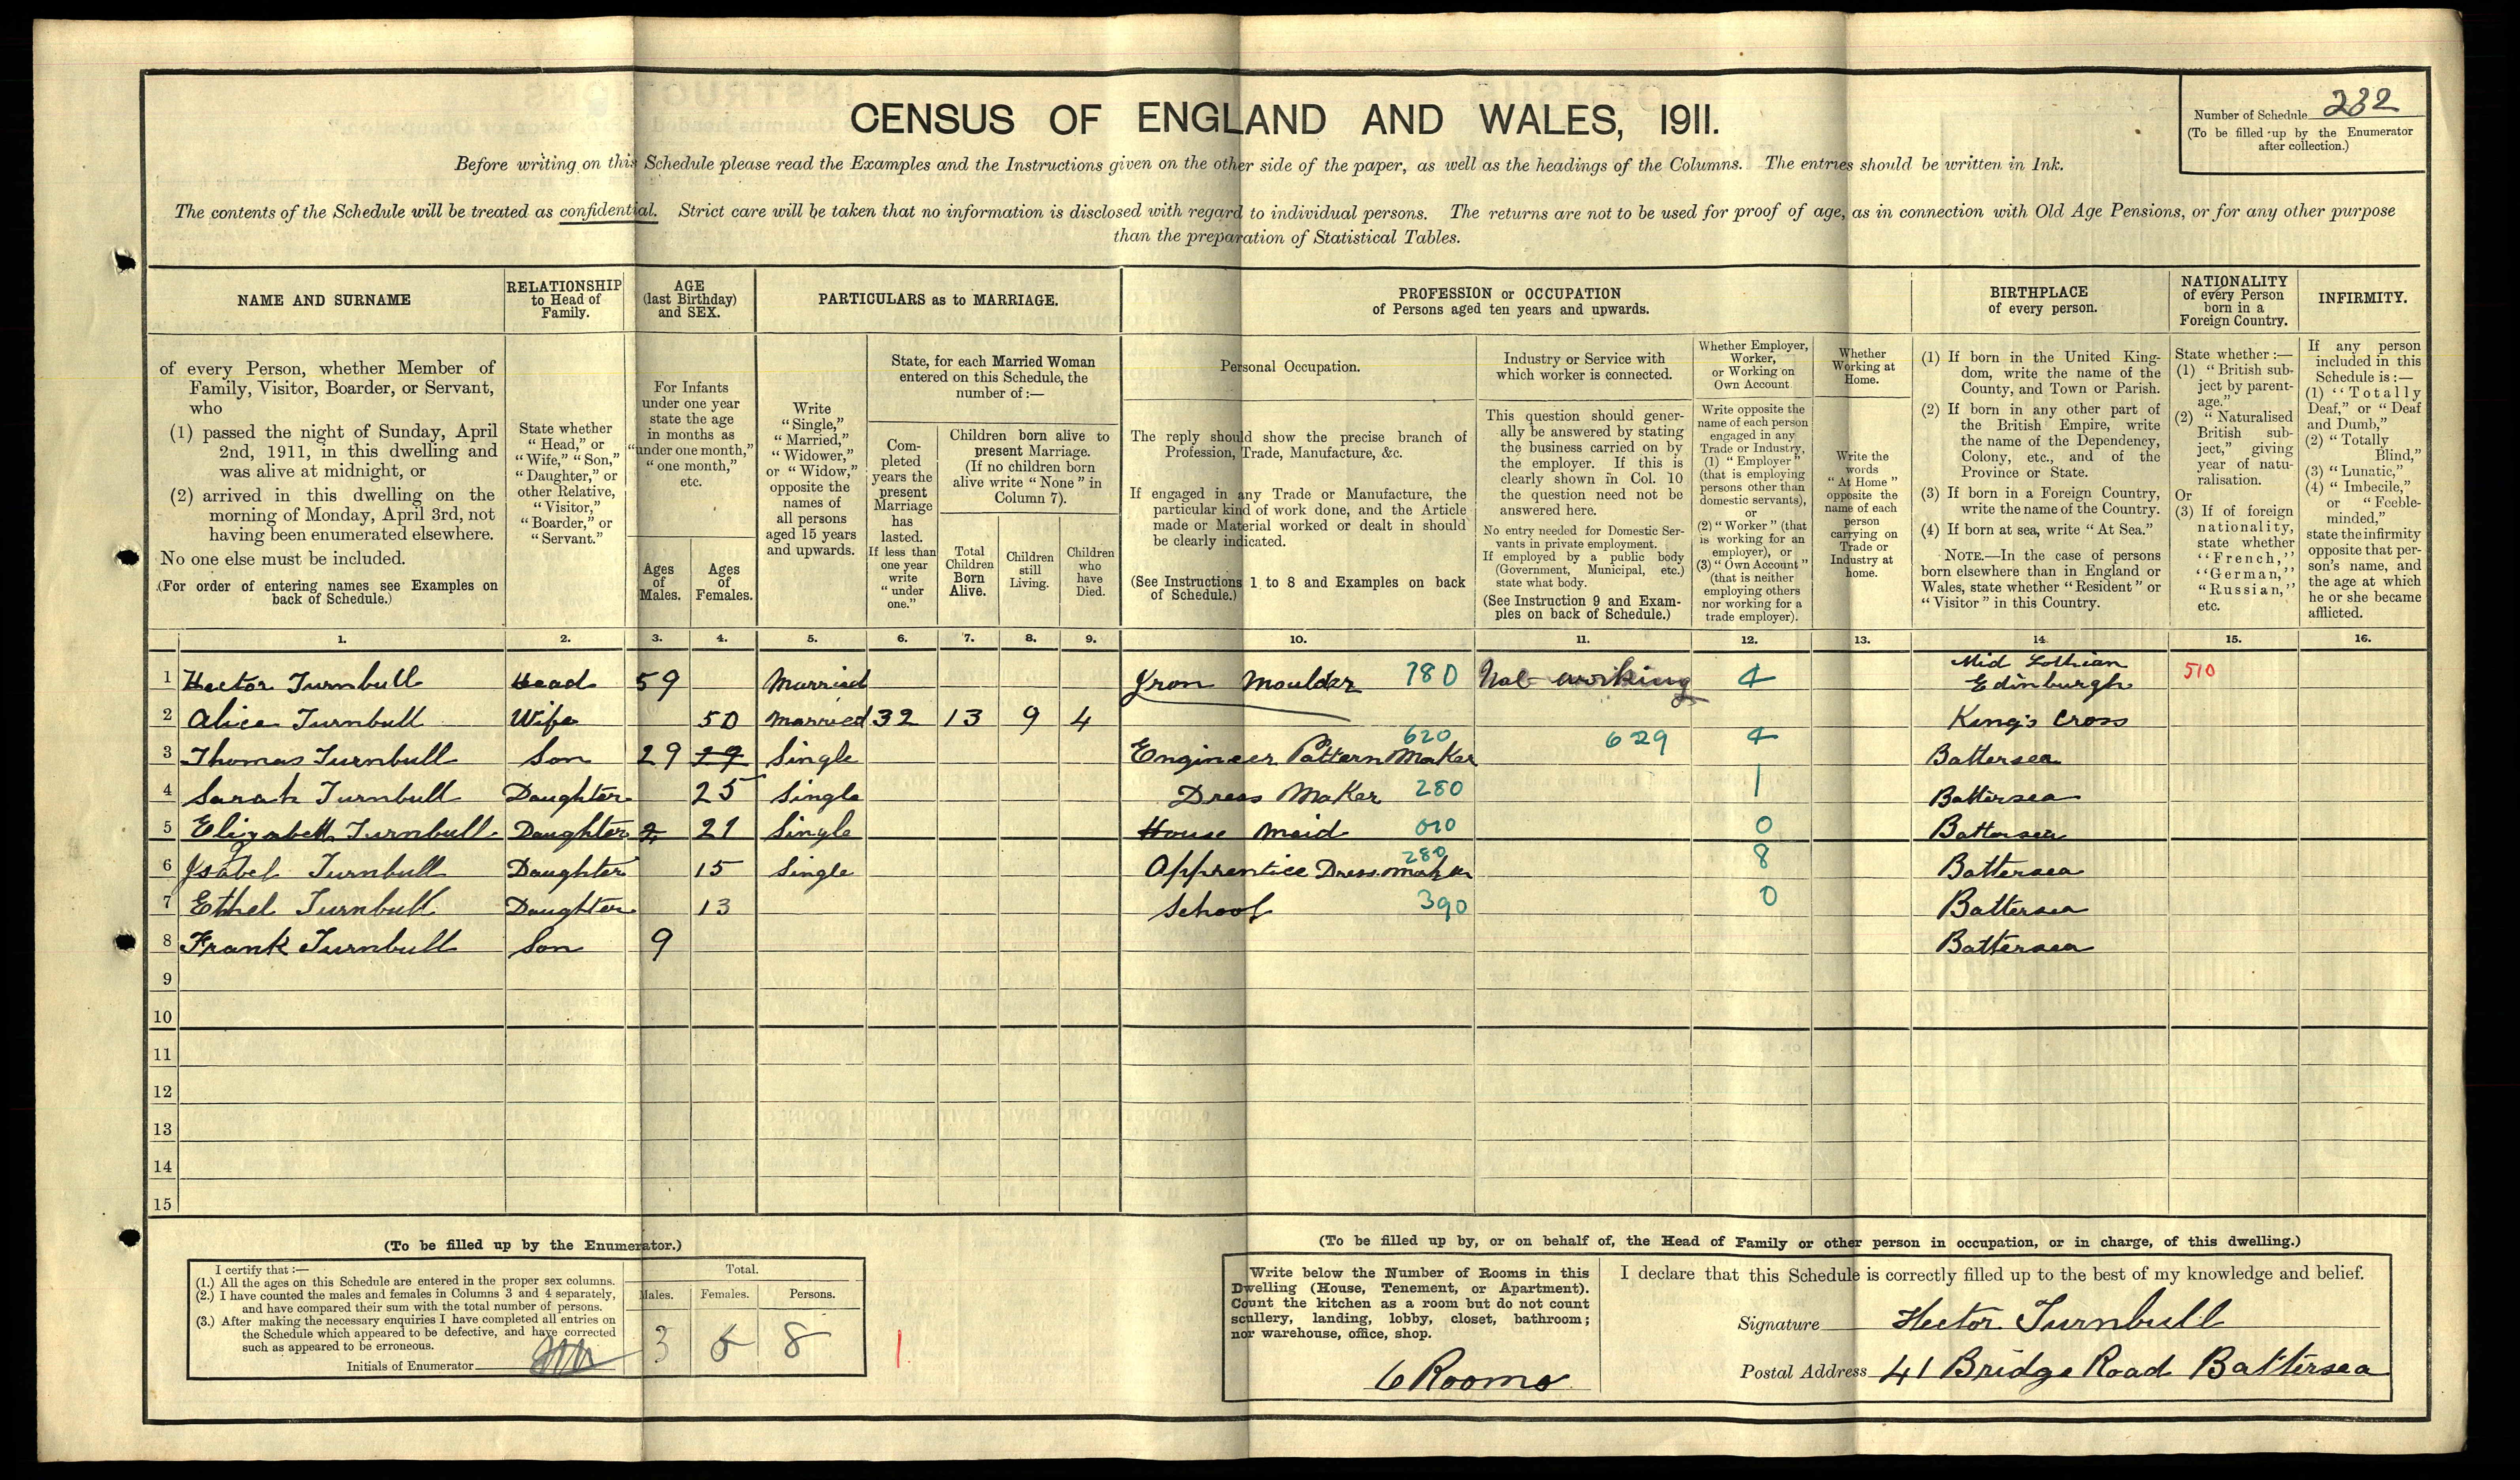 CENSUS OF ENGLAND AND WALES, 1911.
Number of Schedule 232
(To be filled up by the Enumerator
after collection.)
Before writing on this Schedule please read the Examples and the Instructions given on the other side of the paper, as well as the headings of the Columns. The entries should be written in Ink.
The contents of the Schedule will be treated as confidential. Strict care will be taken that no information is disclosed with regard to individual persons. The returns are not to be used for proof of age, as in connection with Old Age Pensions, or for any other purpose
than the preparation of Statistical Tables.
NAME AND SURNAME
of every Person, whether Member of
Family, Visitor, Boarder, or Servant,
who
(1) passed the night of Sunday, April
2nd, 1911, in this dwelling and
was alive at midnight, or
(2) arrived in this dwelling on the
morning of Monday, April 3rd, not
having been enumerated elsewhere.
No one else must be included.
(For order of entering names see Examples on
back of Schedule.)
RELATIONSHIP
to Head of
Family.
State whether
"Head," or
"Wife," "Son,"
"Daughter," or
other Relative,
"Visitor,"
"Boarder," or
"Servant."
AGE
(last Birthday)
and SEX.
For Infants
under one year
state the age
in months as
"under one month,"
"one month,"
etc.
Ages
of
Males.
Ages
of
Females.
PARTICULARS as to MARRIAGE.
Write
"Single,"
"Married,"
"Widower,"
or "Widow,"
opposite the
names of
all persons
aged 15 years
and upwards.
State, for each Married Woman
entered on this Schedule, the
number of:—
Com-
pleted
years the
present
Marriage
has
lasted.
If less than
one year
write
"under
one."
Children born alive to
present Marriage.
(If no children born
alive write "None" in
Column 7).
Total
Children
Born
Alive.
Children
still
Living.
Children
who
have
Died.
PROFESSION or OCCUPATION
of Persons aged ten years and upwards.
Personal Occupation.
The reply should show the precise branch of
Profession, Trade, Manufacture, &c.
If engaged in any Trade or Manufacture, the
particular kind of work done, and the Article
made or Material worked or dealt in should
be clearly indicated.
(See Instructions 1 to 8 and Examples on back
of Schedule.)
Industry or Service with
which worker is connected.
This question should gener-
ally be answered by stating
the business carried on by
the employer. If this is
clearly shown in Col. 10
the question need not be
answered here.
No entry needed for Domestic Ser-
vants in private employment.
If employed by a public body
(Government, Municipal, etc.)
state what body.
(See Instruction 9 and Exam-
ples on back of Schedule.)
Whether Employer,
Worker,
or Working on
Own Account
Write opposite the
name of each person
engaged in any
Trade or Industry,
(1) "Employer"
(that is employing
persons other than
domestic servants),
or
(2) "Worker" (that
is working for an
employer), or
(3) "Own Account"
(that is neither
employing others
nor working for a
trade employer).
Whether
Working at
Home.
Write the
words
"At Home"
opposite the
name of each
person
carrying on
Trade or
Industry at
home.
BIRTHPLACE
of every person.
(1) If born in the United King-
dom, write the name of the
County, and Town or Parish.
(2) If born in any other part of
the British Empire, write
the name of the Dependency,
Colony, etc., and of the
Province or State.
(3) If born in a Foreign Country,
write the name of the Country.
(4) If born at sea, write "At Sea."
NOTE.—In the case of persons
born elsewhere than in England or
Wales, state whether "Resident" or
"Visitor" in this Country.
NATIONALITY
of every Person
born in a
Foreign Country.
State whether:—
(1) "British sub-
ject by parent-
age."
(2) "Naturalised
British sub-
ject," giving
year of natu-
ralisation.
Or
(3) If of foreign
nationality,
state whether
"French,"
"German,"
"Russian,"
etc.
INFIRMITY.
If any person
included in this
Schedule is:—
(1) "Totally
Deaf," or "Deaf
and Dumb,"
(2) "Totally
Blind,"
(3) "Lunatic,"
(4) "Imbecile,"
or "Feeble-
minded,"
state the infirmity
opposite that per-
son's name, and
the age at which
he or she became
afflicted.
1. 2. 3. 4. 5. 6. 7. 8. 9. 10. 11. 12. 13. 14 15. 16.
1 Hector Turnbull Head 59 Married Iron Moulder 780 Not working 4 Mid Lothian Edinburgh 510
2 Alice Turnbull Wife 50 Married 32 13 9 4 King's Cross
3 Thomas Turnbull Son 29 29 Single Engineer Pattern Maker 620 629 4 Battersea
4 Sarah Turnbull Daughter 25 Single Dress Maker 280 1 Battersea
5 Elizabeth Turnbull Daughter 2 21 Single House Maid 010 0 Battersea
6 Isabel Turnbull Daughter 15 Single Apprentice Dress maker 280 8 Battersea
7 Ethel Turnbull Daughter 13 School 390 0 Battersea
8 Frank Turnbull Son 9 Battersea
9
10
11
12
13
14
15
(To be filled up by the Enumerator.)
I certify that:—
(1.) All the ages on this Schedule are entered in the proper sex columns.
(2.) I have counted the males and females in Columns 3 and 4 separately,
and have compared their sum with the total number of persons.
(3.) After making the necessary enquiries I have completed all entries on
the Schedule which appeared to be defective, and have corrected
such as appeared to be erroneous.
Initials of Enumerator
Total.
Males. Females. Persons.
3 5 8
1
(To be filled up by, or on behalf of, the Head of Family or other person in occupation, or in charge, of this dwelling.)
Write below the Number of Rooms in this
Dwelling (House, Tenement, or Apartment).
Count the kitchen as a room but do not count
scullery, landing, lobby, closet, bathroom;
nor warehouse, office, shop.
6 Rooms
I declare that this Schedule is correctly filled up to the best of my knowledge and belief.
Signature Hector Turnbull
Postal Address 41 Bridge Road Battersea